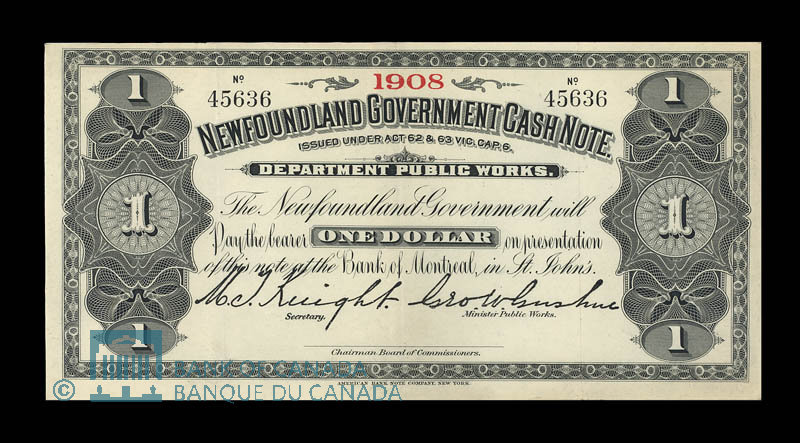 1 1908 1
Nº Nº
45636 45636
NEWFOUNDLAND GOVERNMENT CASH NOTE.
ISSUED UNDER ACT 62 & 63 VIC. CAP. 6.
DEPARTMENT PUBLIC WORKS.
The Newfoundland Government will
Pay the bearer ONE DOLLAR on presentation
of this note at the Bank of Montreal, in St. John's.
1 1
M. J. Knight. Geo W Gushue
Secretary. Minister Public Works.
1 1
Chairman Board of Commissioners.
AMERICAN BANK NOTE COMPANY, NEW YORK.
BANK OF CANADA
© BANQUE DU CANADA